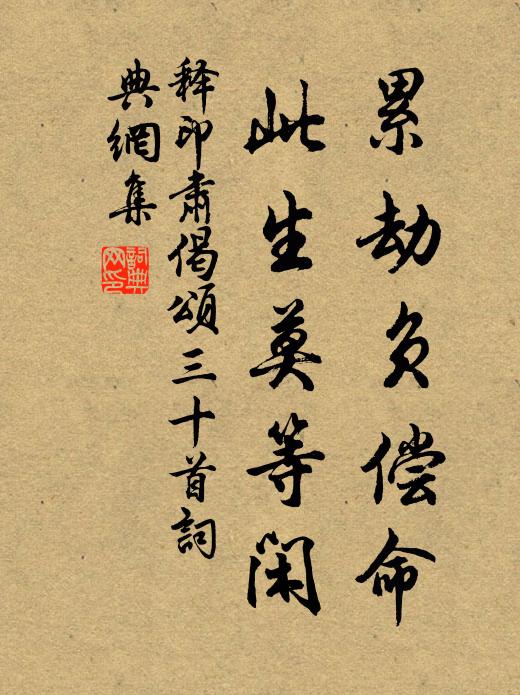 累劫负偿命
此生莫等闲
释印肃偈頌三十首詞
典網集
詞典网印